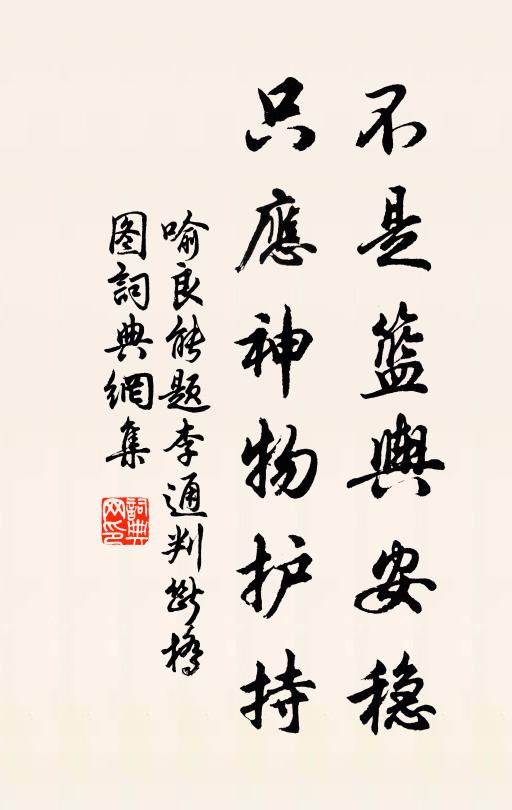 不是籃輿安稳
只應神物护持
喻良能题李通判斷橋
图詞典網集
詞典
网印